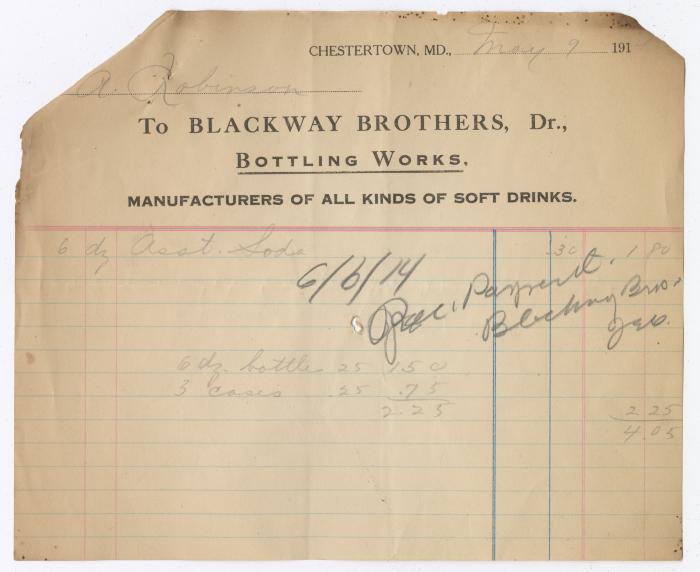 CHESTERTOWN, MD., May 9 191
A. Robinson
To BLACKWAY BROTHERS, Dr.,
BOTTLING WORKS,
MANUFACTURERS OF ALL KINDS OF SOFT DRINKS.
6 dz Asst. Soda .30 1 80
6/6/14
Rec. Payment.
Blackway Bros.
6 dz. bottles 25 1.50
3 cases .25 .75
2.25 2 25
4.05